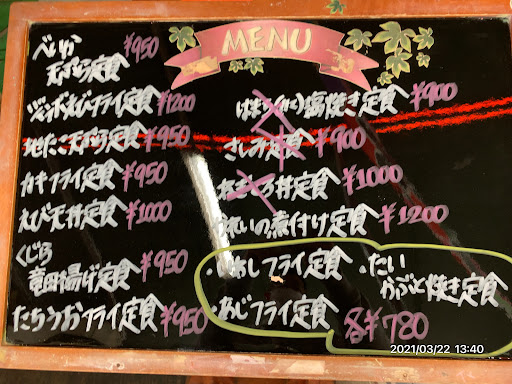 MENU
べいか
天ぷら定食 ¥950
ジャンボえびフライ定食 ¥1200
地たこ天ぷら定食 ¥950
カキフライ定食 ¥950
えび天丼定食 ¥1000
くじら
竜田揚げ定食 ¥950
たちうおフライ定食 ¥950
塩焼き定食 ¥900
さしみ定食 ¥900
丼定食 ¥1000
かれいの煮付け定食 ¥1200
・いわしフライ定食
・たい
かぶと焼き定食
・あじフライ定食
各¥780
2021/03/22 13:40